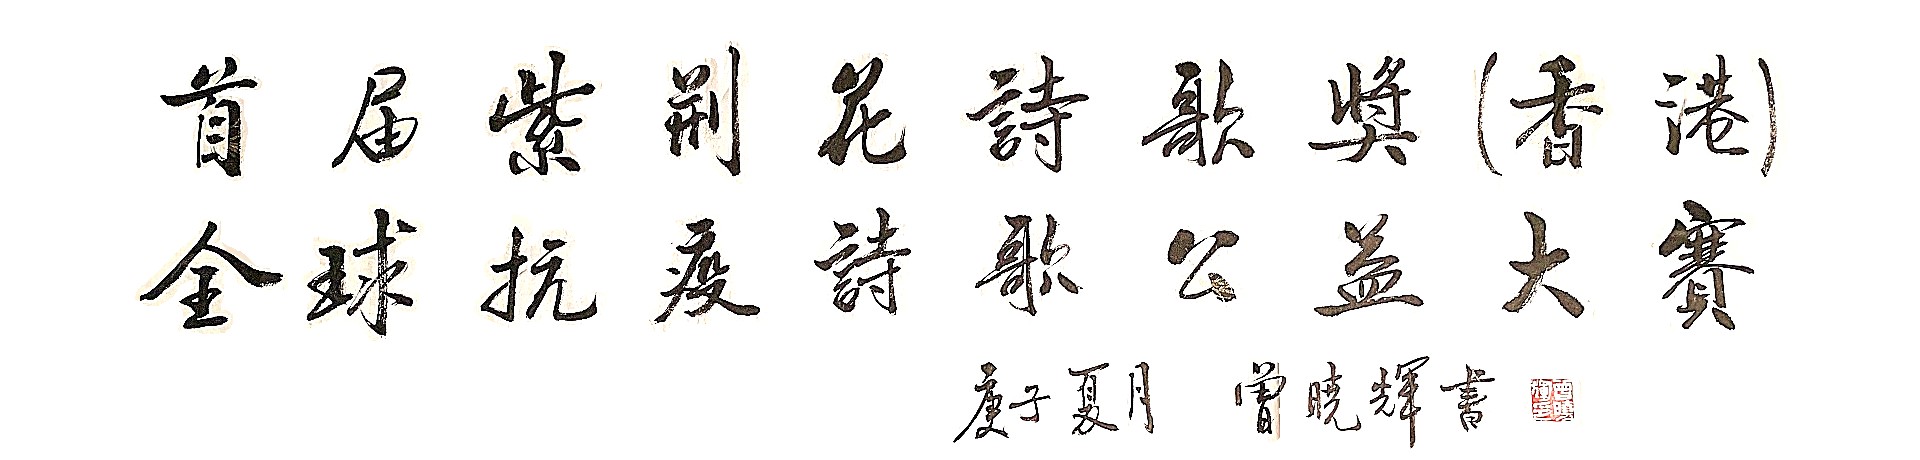 首届紫荆花詩歌獎(香港)
全球抗疫詩歌公益大賽
庚子夏月 曾曉輝書